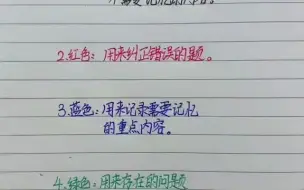 2.红色：用来纠正错误的题。
3.蓝色：用来记录需要记忆
的重点内容。
4.绿色：用来存在的问题